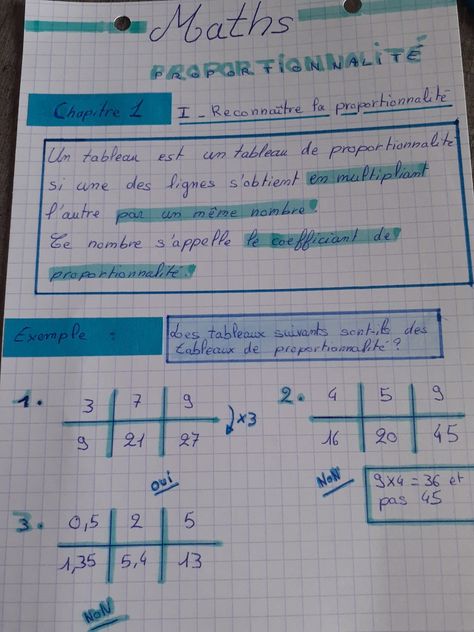 Maths
PROPORTIONNALITÉ
Chapitre 1
I - Reconnaître la proportionnalité
Un tableau est un tableau de proportionnalité
si une des lignes s'obtient en multipliant
l'autre par un même nombre.
Ce nombre s'appelle le coefficiant de
proportionnalité.
Exemple :
Les tableaux suivants sont-ils des
tableaux de proportionnalité ?
1.
3 7 9
9 21 27
×3
oui
2.
4 5 9
16 20 45
NON
9×4 = 36 et
pas 45
3.
0,5 2 5
1,35 5,4 13
NON